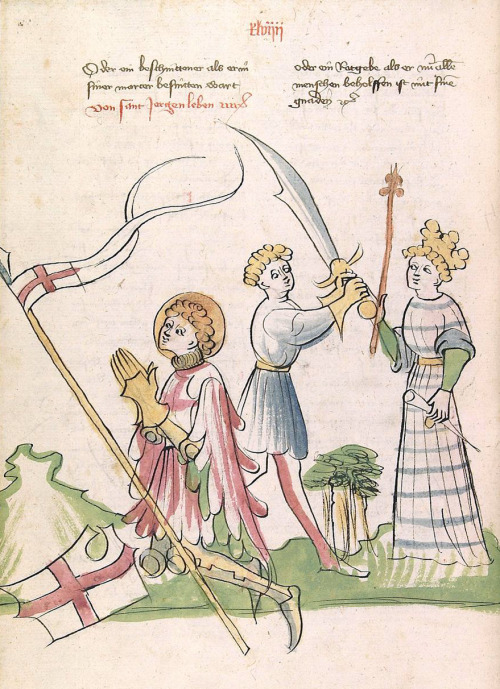 xlviiij
Oder ein beschnittoner als er in
siner marter beschnitten wart
von sant Jergen leben
oder ein Ratgebe als er nu alle
menschen beholffen ist mit sine
gnaden